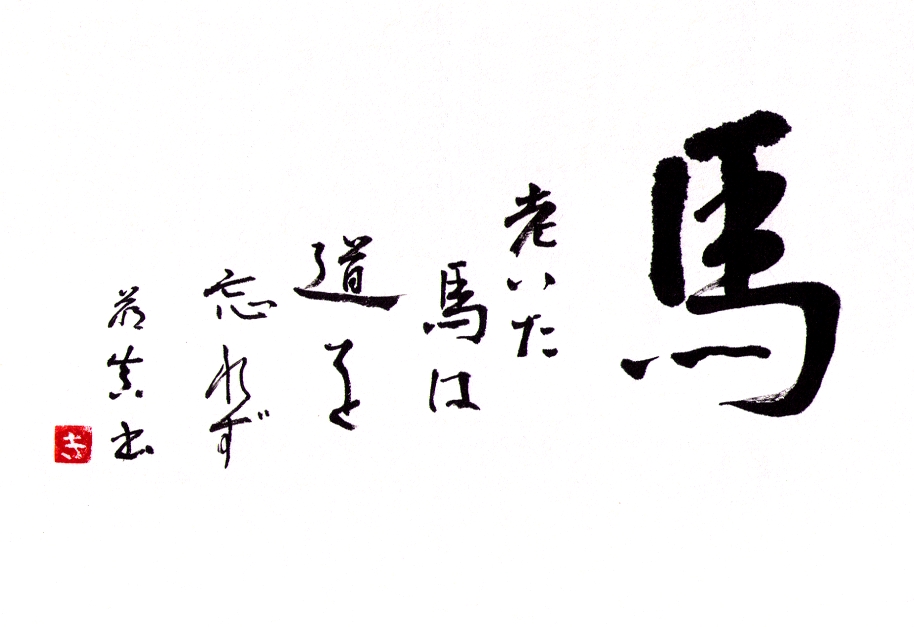 馬
老いた
馬は
道を
忘れず
書
き